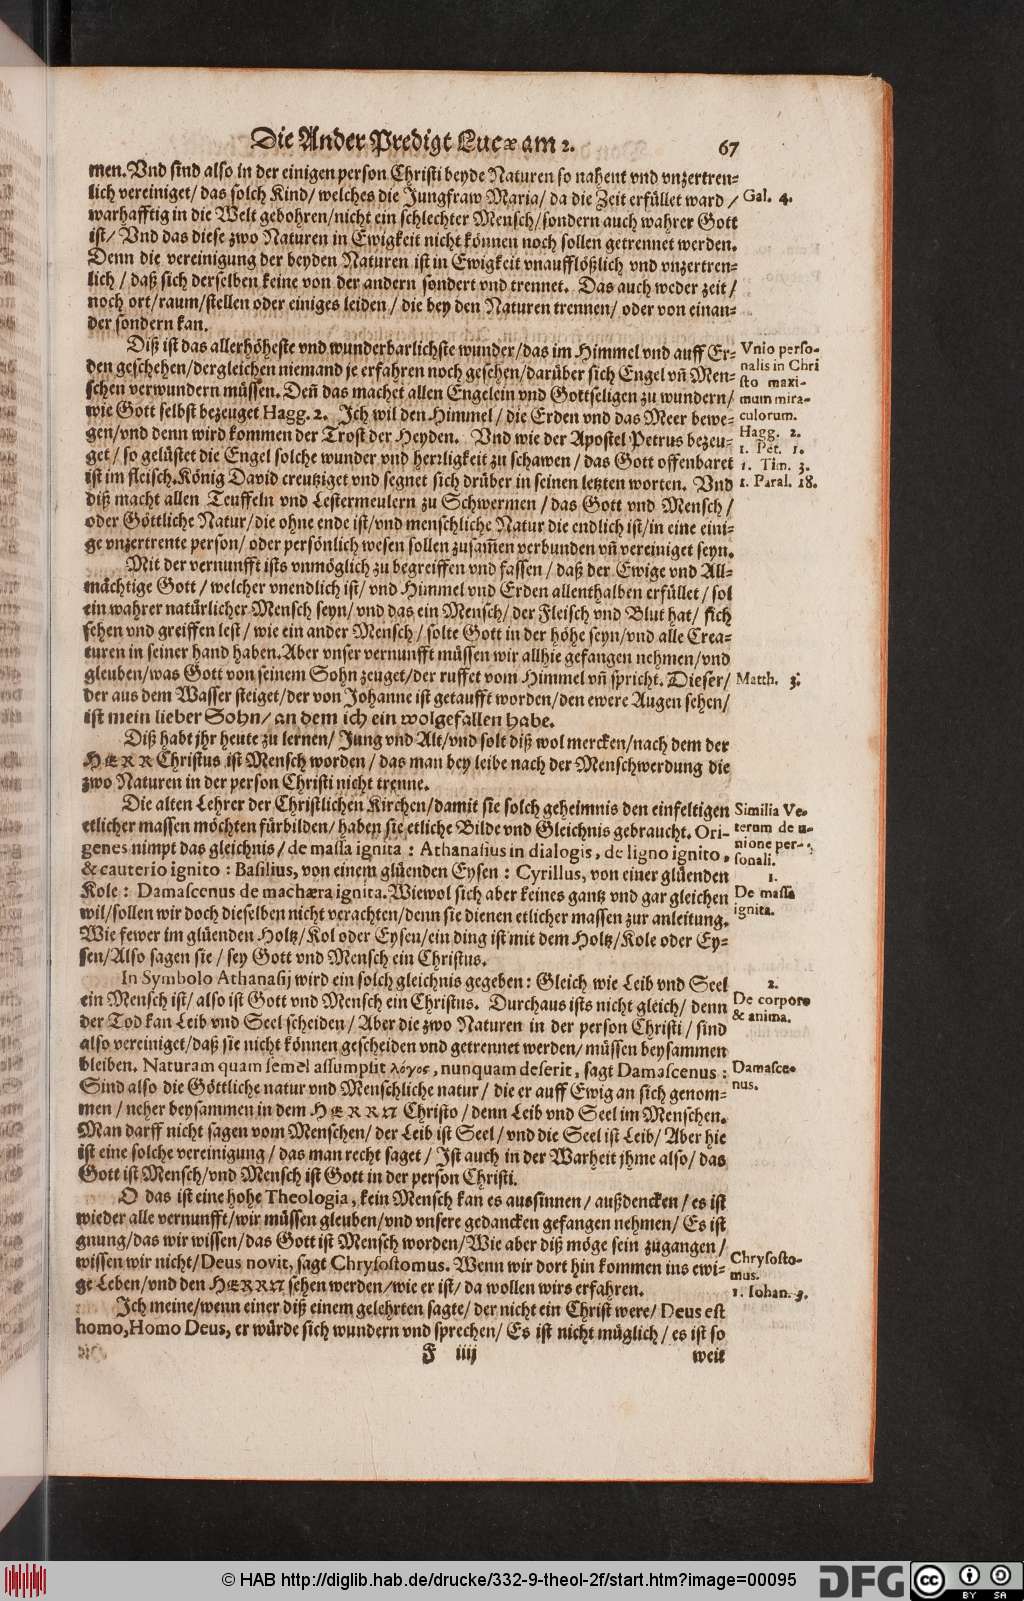 Die Ander Predigt Lucæ am 2.
67
men. Vnd sind also in der einigen person Christi beyde Naturen so nahent vnd vnzertren-
lich vereiniget/ das solch Kind/ welches die Jungfraw Maria/ da die Zeit erfüllet ward /
warhafftig in die Welt gebohren/nicht ein schlechter Mensch/sondern auch wahrer Gott
ist/ Vnd das diese zwo Naturen in Ewigkeit nicht können noch sollen getrennet werden.
Denn die vereinigung der beyden Naturen ist in Ewigkeit vnaufflößlich vnd vnzertren-
lich / daß sich derselben keine von der andern sondert vnd trennet. Das auch weder zeit /
noch ort/raum/stellen oder einiges leiden / die bey den Naturen trennen/ oder von einan-
der sondern kan.
Gal. 4.
Diß ist das allerhöheste vnd wunderbarlichste wunder/das im Himmel vnd auff Er-
den geschehen/dergleichen niemand je erfahren noch gesehen/darüber sich Engel vñ Men-
schen verwundern müssen. Deñ das machet allen Engelein vnd Gottseligen zu wundern/
wie Gott selbst bezeuget Hagg. 2. Ich wil den Himmel / die Erden vnd das Meer bewe-
gen/vnd denn wird kommen der Trost der Heyden. Vnd wie der Apostel Petrus bezeu-
get / so gelüstet die Engel solche wunder vnd herrligkeit zu schawen / das Gott offenbaret
ist im fleisch. König David creutziget vnd segnet sich drüber in seinen letzten worten. Vnd
diß macht allen Teuffeln vnd Lestermeulern zu Schwermen / das Gott vnd Mensch /
oder Göttliche Natur/die ohne ende ist/vnd menschliche Natur die endlich ist/in eine eini-
ge vnzertrente person/ oder persönlich wesen sollen zusam̃en verbunden vñ vereiniget seyn.
Vnio perso-
nalis in Chri
sto maxi-
mum mira-
culorum.
Hagg. 2.
1. Pet. 1.
1. Tim. 3.
1. Paral. 18.
Mit der vernunfft ists vnmöglich zu begreiffen vnd fassen / daß der Ewige vnd All-
mächtige Gott / welcher vnendlich ist/ vnd Himmel vnd Erden allenthalben erfüllet / sol
ein wahrer natürlicher Mensch seyn/vnd das ein Mensch/ der Fleisch vnd Blut hat/ sich
sehen vnd greiffen lest / wie ein ander Mensch / solte Gott in der höhe seyn/vnd alle Crea-
turen in seiner hand haben. Aber vnser vernunfft müssen wir allhie gefangen nehmen/vnd
gleuben/was Gott von seinem Sohn zeuget/der ruffet vom Himmel vñ spricht. Dieser/
der aus dem Wasser steiget/der von Johanne ist getaufft worden/den ewere Augen sehen/
ist mein lieber Sohn/ an dem ich ein wolgefallen habe.
Matth. 3.
Diß habt jhr heute zu lernen/ Jung vnd Alt/vnd solt diß wol mercken/nach dem der
HERR Christus ist Mensch worden / das man bey leibe nach der Menschwerdung die
zwo Naturen in der person Christi nicht trenne.
Die alten Lehrer der Christlichen Kirchen/damit sie solch geheimnis den einfeltigen
etlicher massen möchten fürbilden/ haben sie etliche Bilde vnd Gleichnis gebraucht. Ori-
genes nimpt das gleichnis / de massa ignita : Athanasius in dialogis, de ligno ignito,
& cauterio ignito : Basilius, von einem glüenden Eysen : Cyrillus, von einer glüenden
Kole : Damascenus de machæra ignita. Wiewol sich aber keines gantz vnd gar gleichen
wil/sollen wir doch dieselben nicht verachten/denn sie dienen etlicher massen zur anleitung.
Wie fewer im glüenden Holtz/Kol oder Eysen/ein ding ist mit dem Holtz/Kole oder Ey-
sen/Also sagen sie / sey Gott vnd Mensch ein Christus.
Similia Ve-
terum de u-
nione per-
sonali.
1.
De massa
ignita.
In Symbolo Athanasij wird ein solch gleichnis gegeben : Gleich wie Leib vnd Seel
ein Mensch ist/ also ist Gott vnd Mensch ein Christus. Durchaus ists nicht gleich/ denn
der Tod kan Leib vnd Seel scheiden / Aber die zwo Naturen in der person Christi / sind
also vereiniget/daß sie nicht können gescheiden vnd getrennet werden/müssen beysammen
bleiben. Naturam quam semel assumpsit λόγος, nunquam deserit, sagt Damascenus :
Sind also die Göttliche natur vnd Menschliche natur / die er auff Ewig an sich genom-
men / neher beysammen in dem HERRN Christo / denn Leib vnd Seel im Menschen.
Man darff nicht sagen vom Menschen/ der Leib ist Seel / vnd die Seel ist Leib/ Aber hie
ist eine solche vereinigung / das man recht saget / Ist auch in der Warheit jhme also/ das
Gott ist Mensch/vnd Mensch ist Gott in der person Christi.
2.
De corpore
& anima.
Damasce-
nus.
O das ist eine hohe Theologia, kein Mensch kan es aussinnen / außdencken / es ist
wieder alle vernunfft/wir müssen gleuben/vnd vnsere gedancken gefangen nehmen/ Es ist
gnung/das wir wissen/das Gott ist Mensch worden/Wie aber diß möge sein zugangen /
wissen wir nicht/Deus novit, sagt Chrysostomus. Wenn wir dort hin kommen ins ewi-
ge Leben/vnd den HERRN sehen werden/wie er ist/ da wollen wirs erfahren.
Chrysosto-
mus.
1. Iohan. 3.
Ich meine/wenn einer diß einem gelehrten sagte/ der nicht ein Christ were/ Deus est
homo, Homo Deus, er würde sich wundern vnd sprechen/ Es ist nicht müglich / es ist so
F iiij
weit
© HAB http://diglib.hab.de/drucke/332-9-theol-2f/start.htm?image=00095
DFG
cc
BY SA